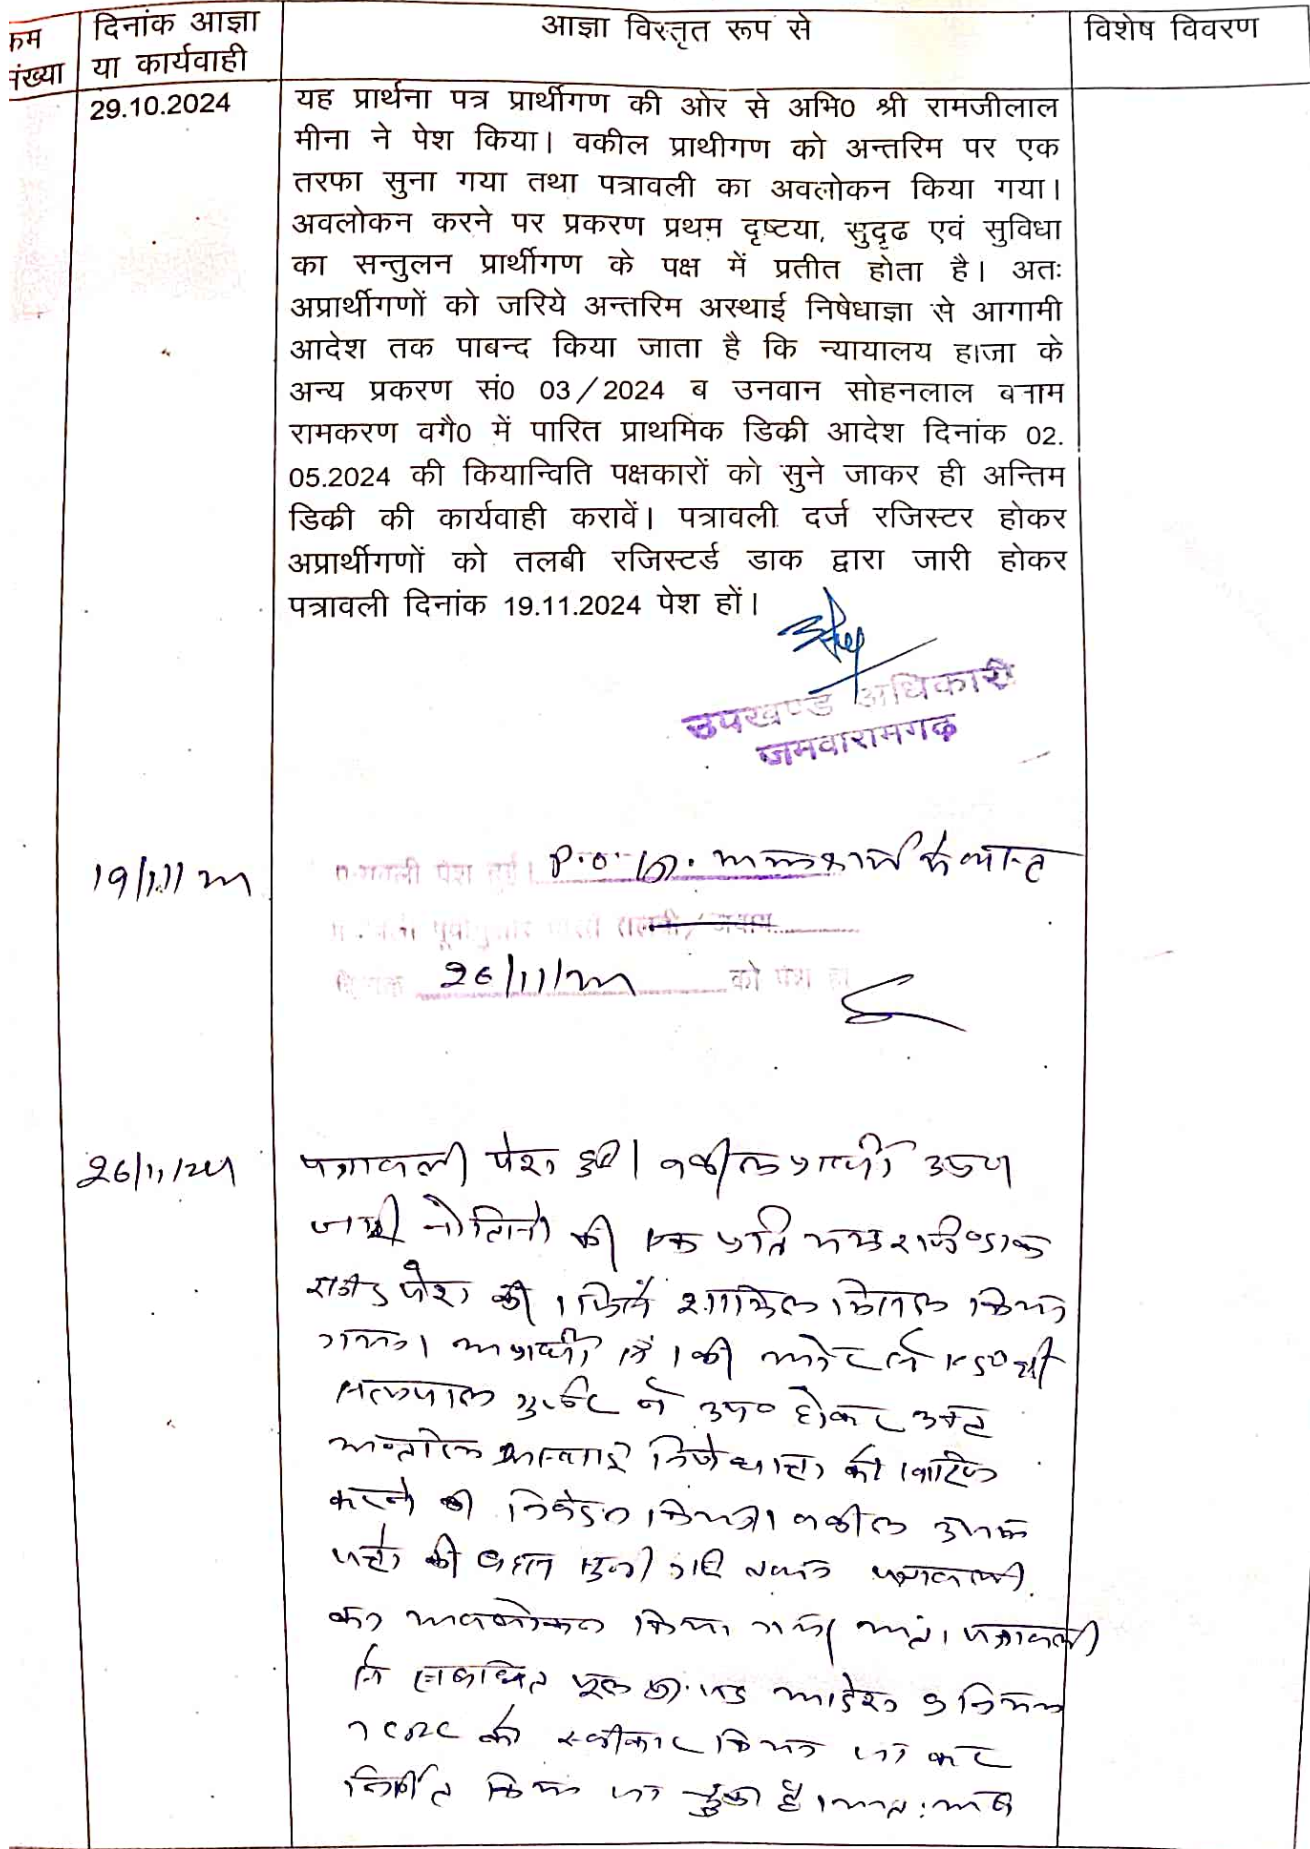 क्रम
संख्या
दिनांक आज्ञा
या कार्यवाही
आज्ञा विस्तृत रूप से
विशेष विवरण
29.10.2024
यह प्रार्थना पत्र प्रार्थीगण की ओर से अभि0 श्री रामजीलाल
मीना ने पेश किया। वकील प्राथीगण को अन्तरिम पर एक
तरफा सुना गया तथा पत्रावली का अवलोकन किया गया।
अवलोकन करने पर प्रकरण प्रथम दृष्टया, सुदृढ एवं सुविधा
का सन्तुलन प्रार्थीगण के पक्ष में प्रतीत होता है। अतः
अप्रार्थीगणों को जरिये अन्तरिम अस्थाई निषेधाज्ञा से आगामी
आदेश तक पाबन्द किया जाता है कि न्यायालय हाजा के
अन्य प्रकरण सं0 03/2024 ब उनवान सोहनलाल बनाम
रामकरण वगै0 में पारित प्राथमिक डिक्री आदेश दिनांक 02.
05.2024 की कियान्विति पक्षकारों को सुने जाकर ही अन्तिम
डिक्री की कार्यवाही करावें। पत्रावली दर्ज रजिस्टर होकर
अप्रार्थीगणों को तलबी रजिस्टर्ड डाक द्वारा जारी होकर
पत्रावली दिनांक 19.11.2024 पेश हों।
उपखण्ड अधिकारी
जमवारामगढ़
19/11/24
पत्रावली पेश हुई। P.O. सा.
26/11/24 को पेश हो
26/11/24
पत्रावली पेश हुई। वकील प्रार्थी उप0
जारी नोटिसों की एक प्रति मय
पेश की। जिसे शामिल मिसल किया
गया। अप्रार्थी सं. 1 की ओर से एड0 श्री
सत्यपाल गुर्जर ने उप0 होकर उक्त
अन्तरिम अस्थाई निषेधाज्ञा को खारिज
करने का निवेदन किया। वकील उभय
पक्षों की बहस सुनी गई तथा पत्रावली
का अवलोकन किया गया। अतः पत्रावली
से संबंधित मूल आदेश 9 नियम
को स्वीकार किया जा कर
निर्णीत किया जा चुका है। अतः अब